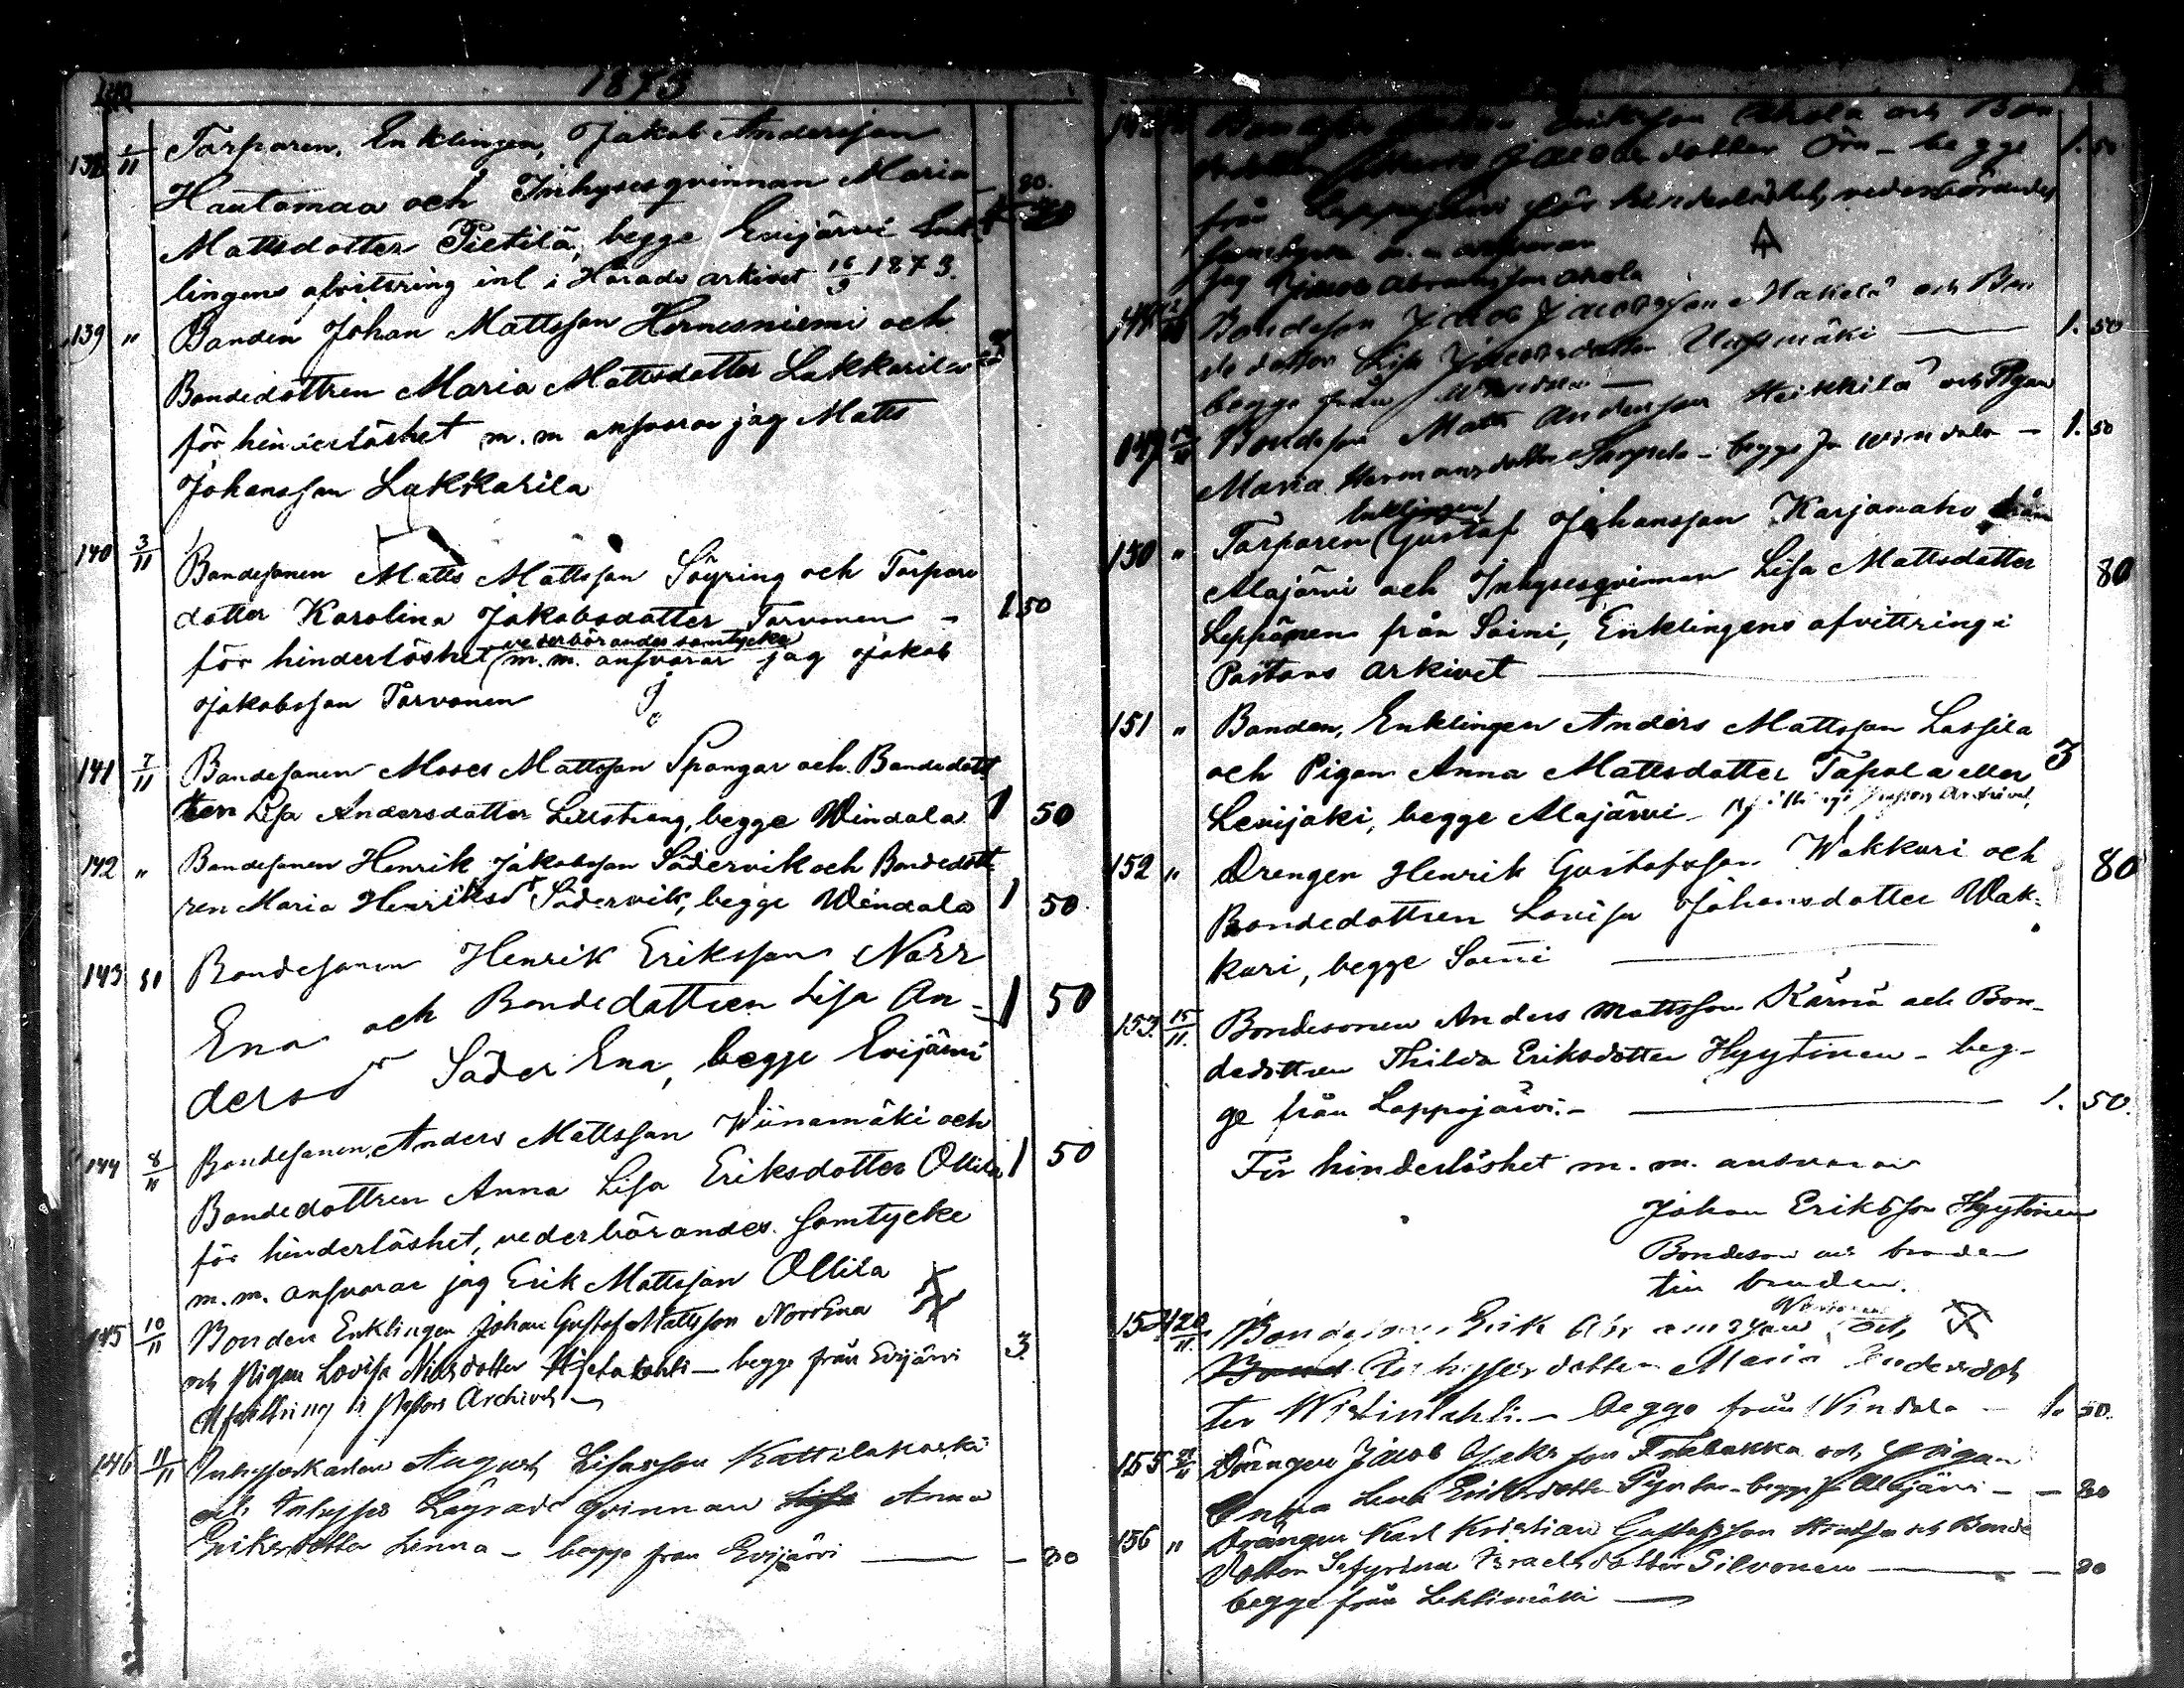 1873
138 1/11 Torparen, Enklingen, Jakob Andersson
Hautamaa och Inhysesqvinnan Maria
Mattsdotter Pietilä, begge Evijärvi Enk- 80.
lingens afvittring inl i Härads arkivet 16/9 1873.
139 " Bonden Johan Mattsson Hernesniemi och
Bondedottren Maria Mattsdotter Lakkarila
för hinderlöshet m.m ansvarar jag Matts
Johansson Lakkarila
140 3/11 Bondesonen Matts Mattsson Söyring och Torpare
dotter Karolina Jakobsdotter Torvonen - 1 50
vederbörandes samtycke
för hinderlöshet m.m. ansvarar jag Jakob
Jakobsson Torvonen
141 7/11 Bondesonen Moses Mattsson Spangar och Bondedott
tren Lisa Andersdotter Lillstrang, begge Windala 1 50
142 " Bondesonen Henrik Jakobsson Södervik och Bondedott
ren Maria Henriksdr Södervik, begge Windala 1 50.
143 Bondesonen Henrik Eriksson Norr
Ena och Bondedottren Lisa An- 1 50
dersdr Söder Ena, begge Evijärvi
144 8/11 Bondesonen Anders Mattsson Wiinamäki och
Bondedottren Anna Lisa Eriksdotter Ollila 1 50
för hinderlöshet, vederbörandes samtycke
m.m. ansvarar jag Erik Mattsson Ollila
145 10/11 Bonden Enklingen Johan Gustaf Mattsson NorrEna
och Pigan Lovisa Nilsdotter Hietalahti - begge från Evijärvi 3.
Afvittring i Pastors Archivet
146 11/11 Inhyseskarlen August Lisasson Kattilakoski
och Inhyses Lägrade qvinnan Anna
Eriksdotter Linna - begge från Evijärvi - 80
Eriksson Ahola och Bon
dedottren Maria Jacobsdotter Örn - begge 1. 50
från Lappajärvi för hinderlöshet, vederbörandes
samtycke m.m ansvarar
jag Jacob Abrahamsson Ahola
148 Bondeson Jacob Jacobsson Mäkelä och Bon
dedotter Lisa Jacobsdotter 1. 50
begge från Windala
149 Bondeson Matts Andersson Heikkilä och Pigan
Maria Hermansdotter - begge fr Windala - 1. 50
Enklingen
150 " Torparen Gustaf Johansson Karjanaho från
Alajärvi och Inhysesqvinnan Lisa Mattsdotter 80
Leppänen från Soini, Enklingens afvittring i
Pastors arkivet
151 " Bonden, Enklingen Anders Mattsson Lassila
och Pigan Anna Mattsdotter Tapola eller 3
Levijoki, begge Alajärvi - Afvittring i Pastors Archivet,
152 " Drengen Henrik Gustafsson Wakkuri och 80
Bondedottren Lovisa Johansdotter Wak-
kuri, begge Soini
153. 15/11. Bondesonen Anders Mattsson Kärnä och Bon-
dedottren Thilda Eriksdotter Hyytinen - beg-
ge från Lappajärvi. - 1. 50.
För hinderlöshet m.m. ansvarar
Johan Eriksson Hyytinen
Bondeson och broder
till bruden.
154 20/11. Bondesonen Erik Abramsson och
Inhysesdotter Maria Andersdot
ter Wistinlahti. - begge från Windala - 1. 50.
155 Drängen Jacob Jakssson och pigan
Anna Lena Eriksdotter - begge fr Alajärvi - - 80
156 " Drängen Karl Kristian Gustafsson och Bonde
dotter Sefyrina Israelsdotter Silvonen - 80
begge från Lehtimäki